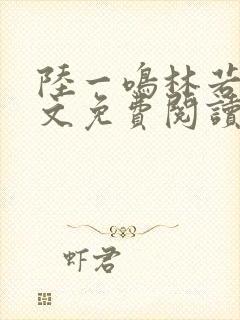 陸一鳴林若
文免費閱讀
虾君